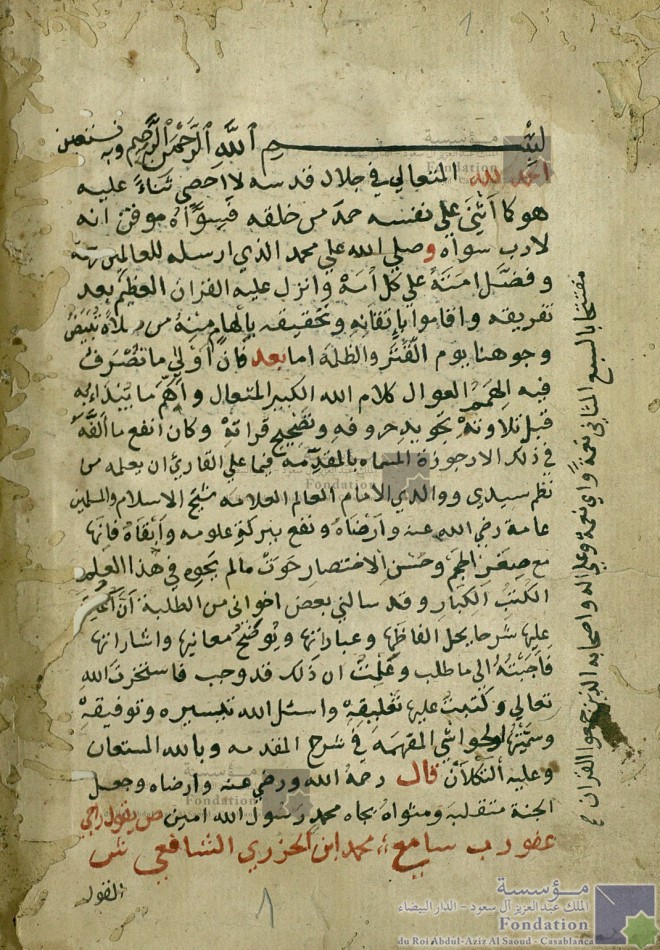 بسم الله الرحمن الرحيم وبه نستعين
الحمد لله المتعالي في جلال قدسه لا احصي ثناءً عليه
هو كما اثني علي نفسه حمد من خلقه فسواه موقن انه
لارب سواه وصلي الله علي محمد الذي ارسله للعالمين رحمة
وفضل امته علي كل امة وانزل عليه القران العظيم بعد
تفريقه واقاموا بإتقانه وتحقيقه بإلهام منه من
وجوهنا يوم القتر والظلة اما بعد فان اولي ما تصرف
فيه الهمم العوال كلام الله الكبير المتعال واهم ما يبتداء به
قبل تلاوته تجويد حروفه وتصحيح قراته وكان انفع ما الفه
في ذلك الارجوزة المسماه بالمقدمة فيما علي القارئ ان يعلمه من
نظم سيدي ووالدي الامام العالم العلامه شيخ الاسلام والمسلمين
عامة رضي الله عنه وارضاه ونفع ببركة علومه وابقاه فانها
مع صغر الحجم وحسن الاختصار حوت مالم يحوه في هذا العلم
الكتب الكبار وقد سالني بعض اخواني من الطلبة ان
عليها شرحا يحل الفاظها وعباراتها ويوضح معانيها واشاراتها
فاجبته الي ما طلب وعلمت ان ذلك قد وجب فاستخرت الله
تعالي وكتبت عليها تعليقة واسئل الله تيسيره وتوفيقه
وسميتها الحواشي المفهمة في شرح المقدمه وبالله المستعان
وعليه التكلان قال رحمه الله ورضي عنه وارضاه وجعل
الجنة متقلبه ومثواه بجاه محمد رسول الله امين ص يقول راجي
عفو رب سامع محمد ابن الجزري الشافعي ش
القول
مفتتحا بالسبع المثاني نعمةً واي نعمة وعلي اله واصحابه الذين جمعوا القران
1
1
مؤسسة
الملك عبد العزيز آل سعود - الدار البيضاء
Fondation
du Roi Abdul-Aziz Al Saoud - Casablanca